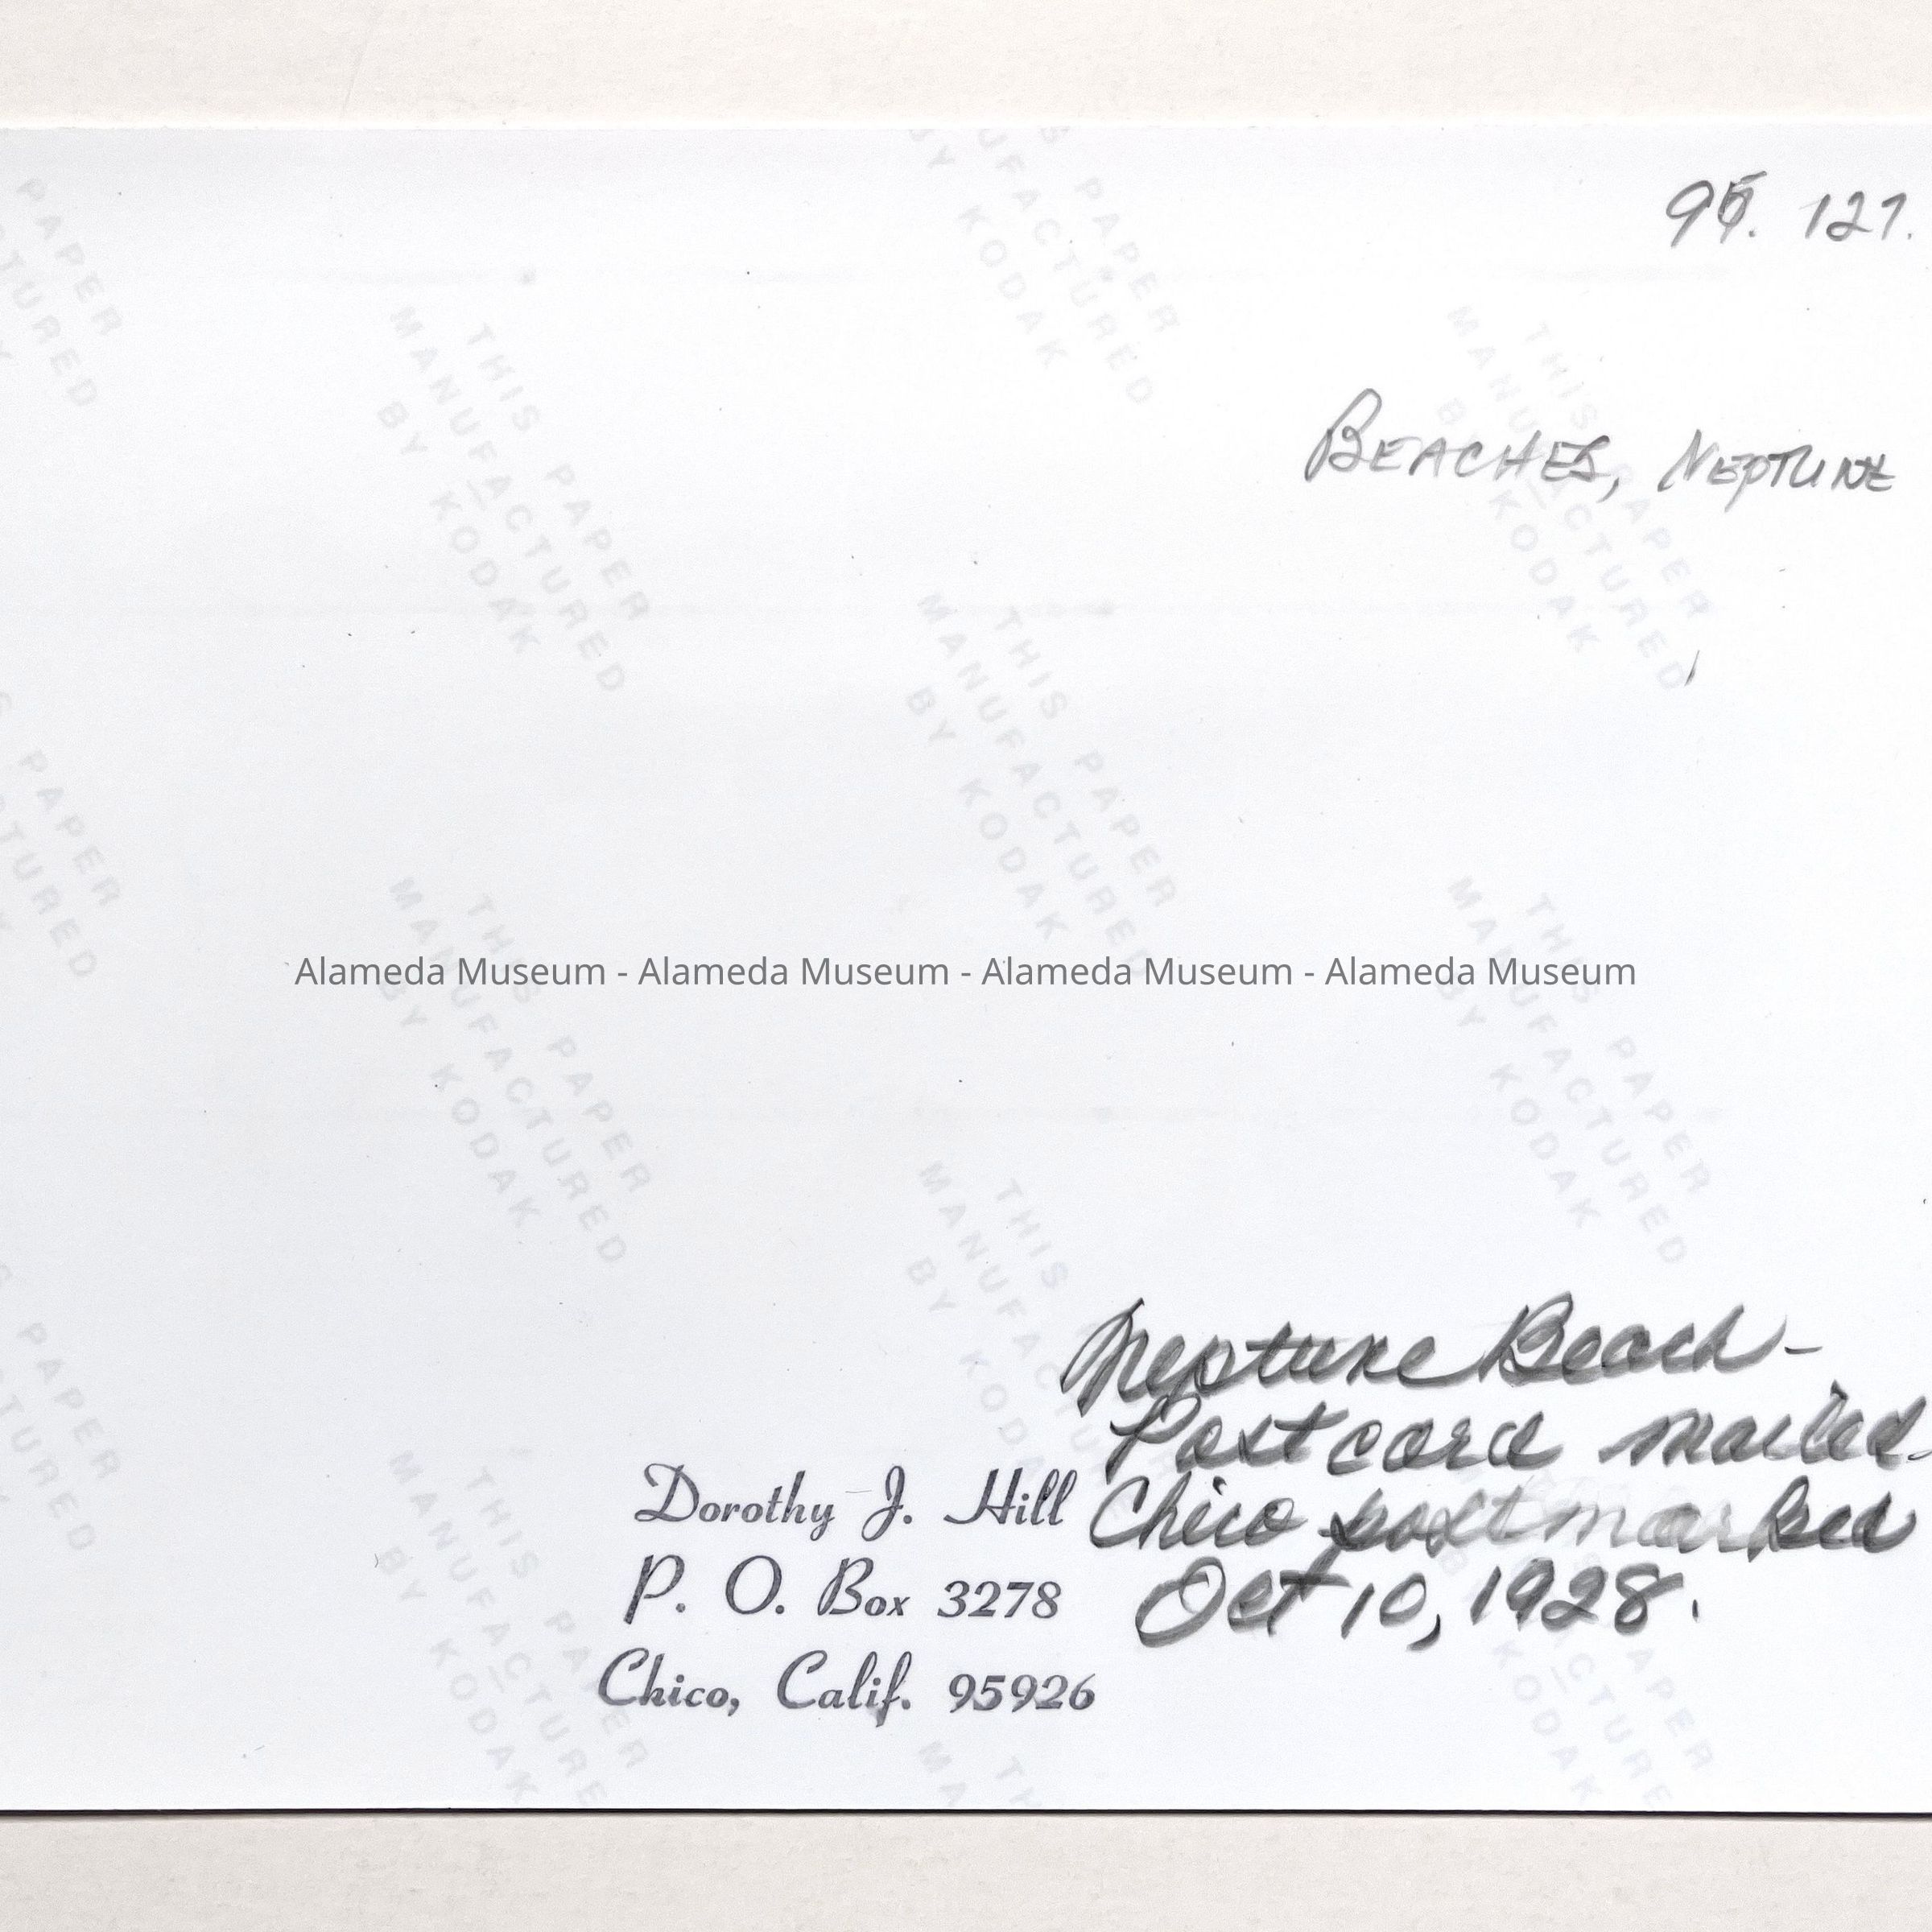 127.
BEACHES, NEPTUNE
THIS PAPER
MANUFACTURED
BY KODAK
Alameda Museum - Alameda Museum - Alameda Museum - Alameda Museum
Neptune Beach -
Postcard mailed.
Chico postmarked
Oct 10, 1928.
Dorothy J. Hill
P. O. Box 3278
Chico, Calif. 95926